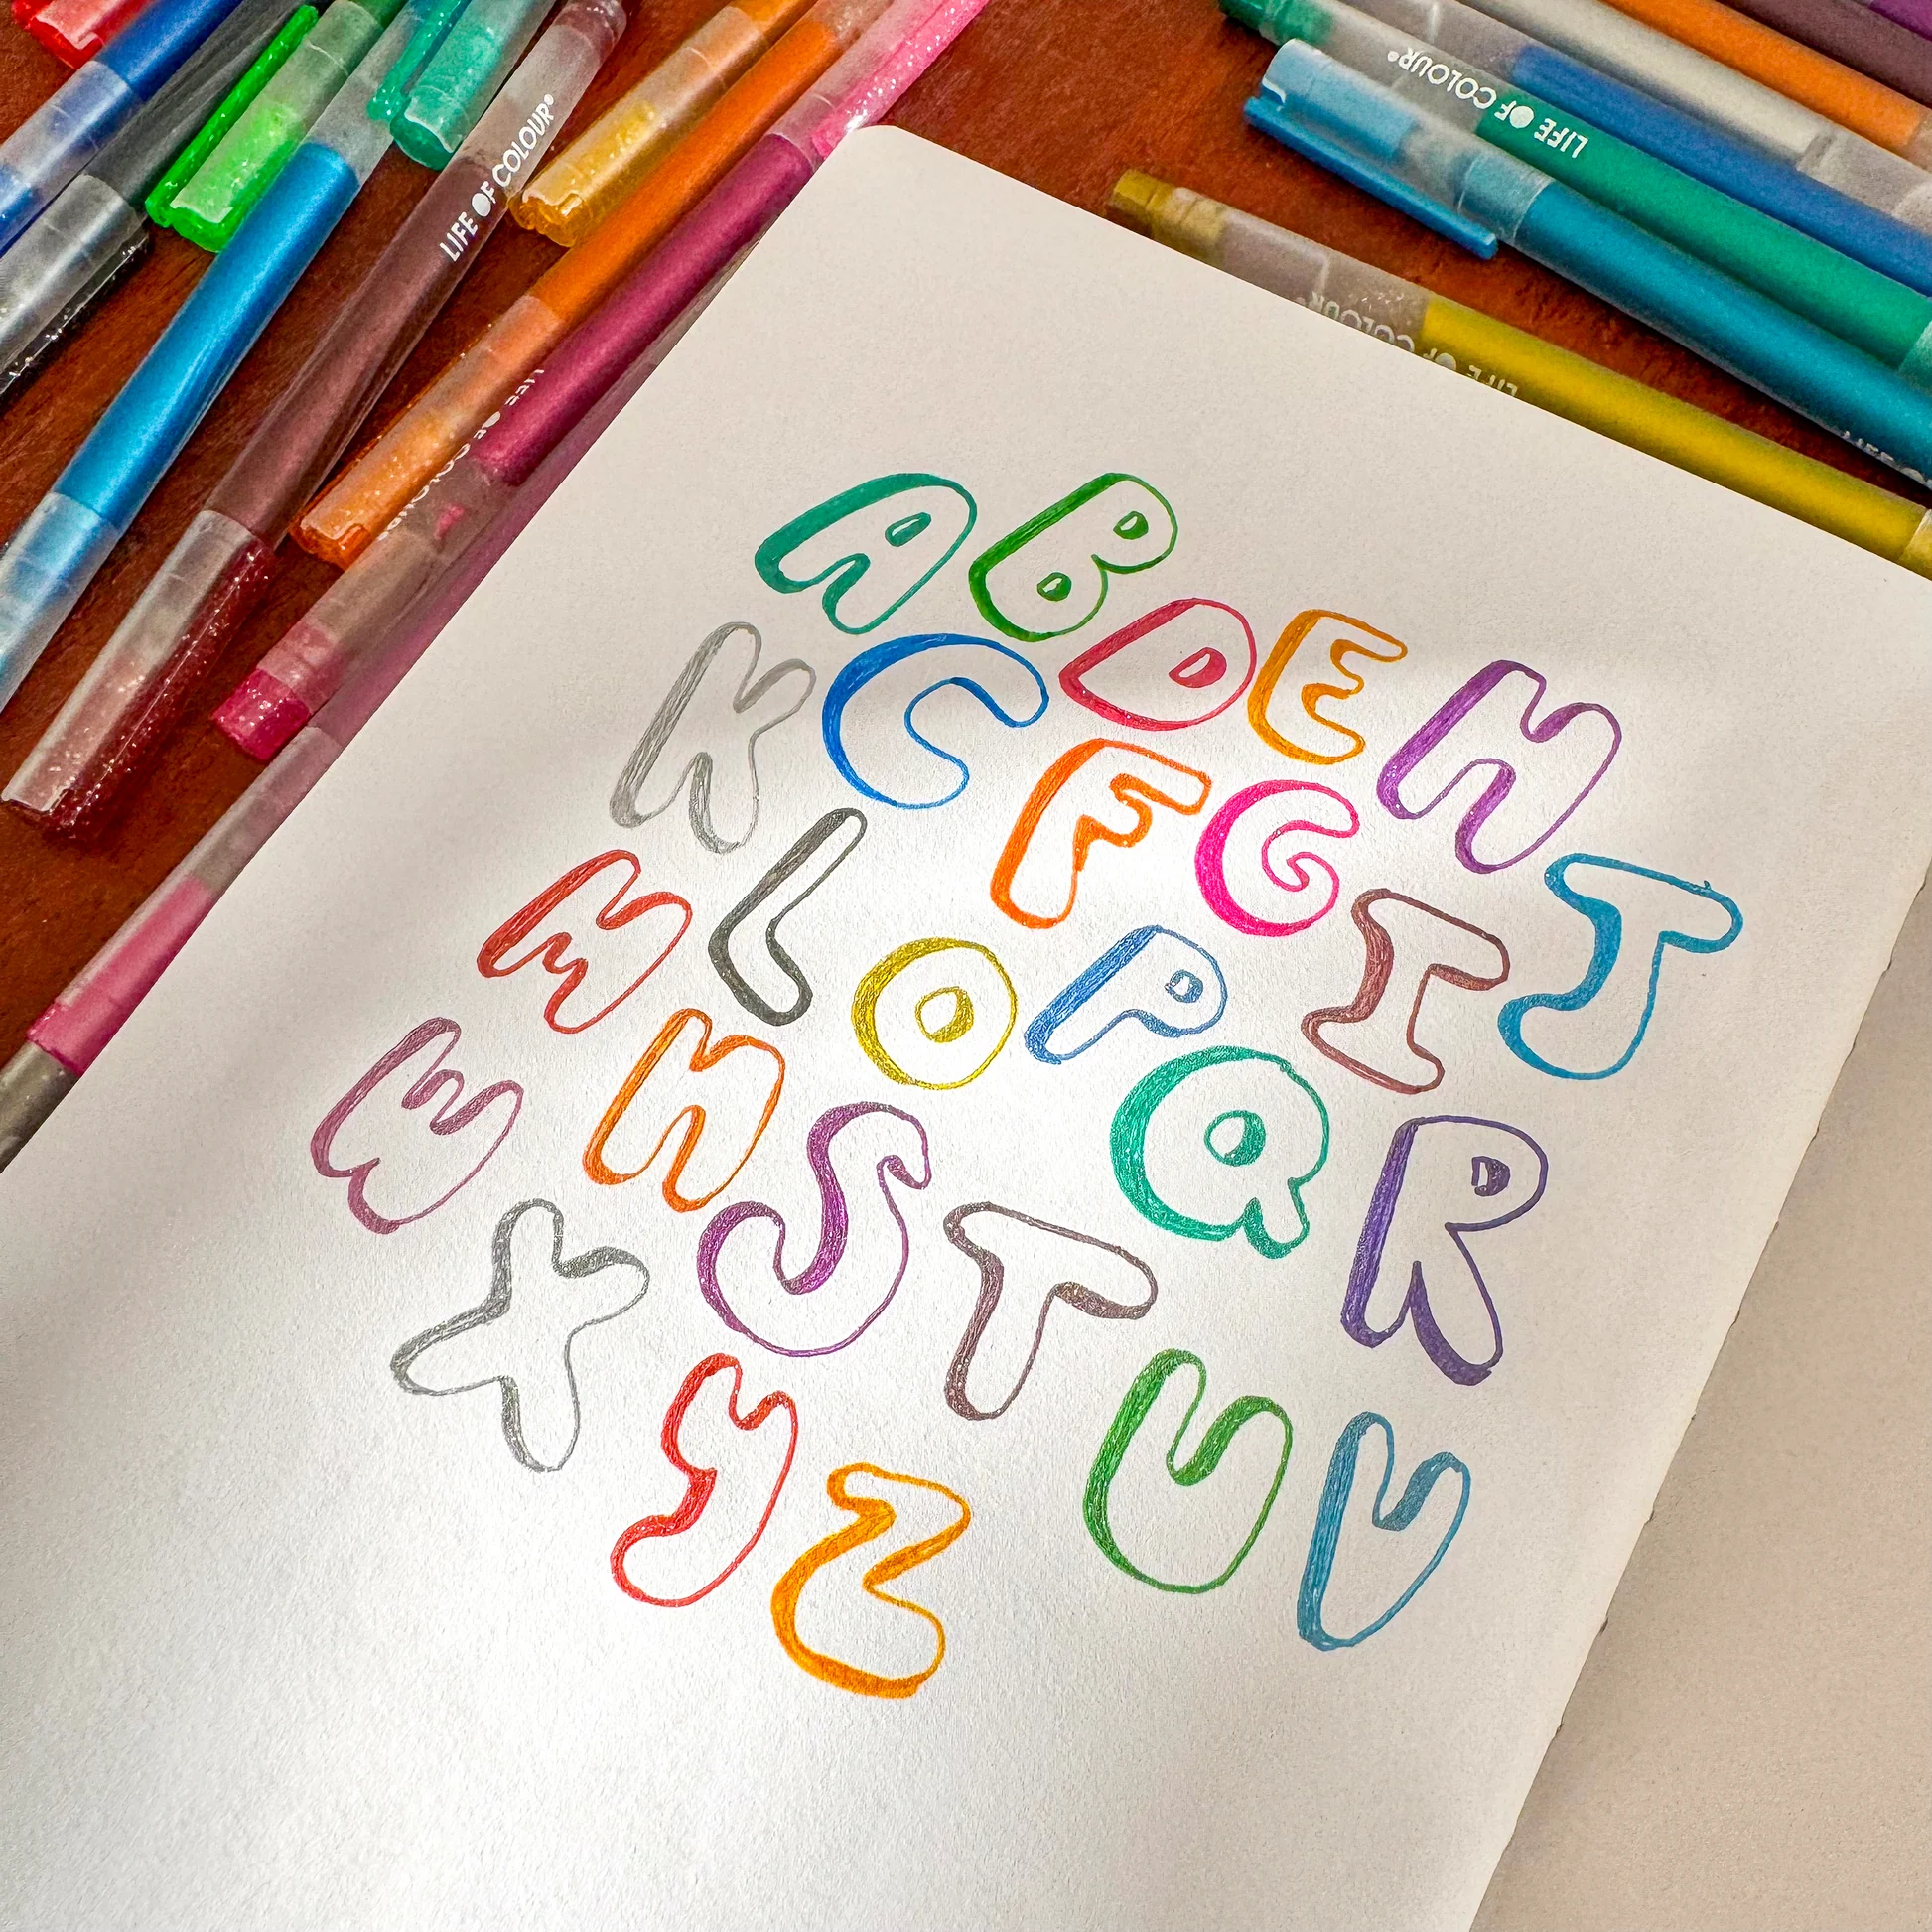 LIFE OF COLOUR
LIFE OF COLOUR
LIFE OF COLOUR
LIFE OF COLOUR
A B
C D E
F G H
I J
K L
M N O P
Q R
S T U V
W X Y Z